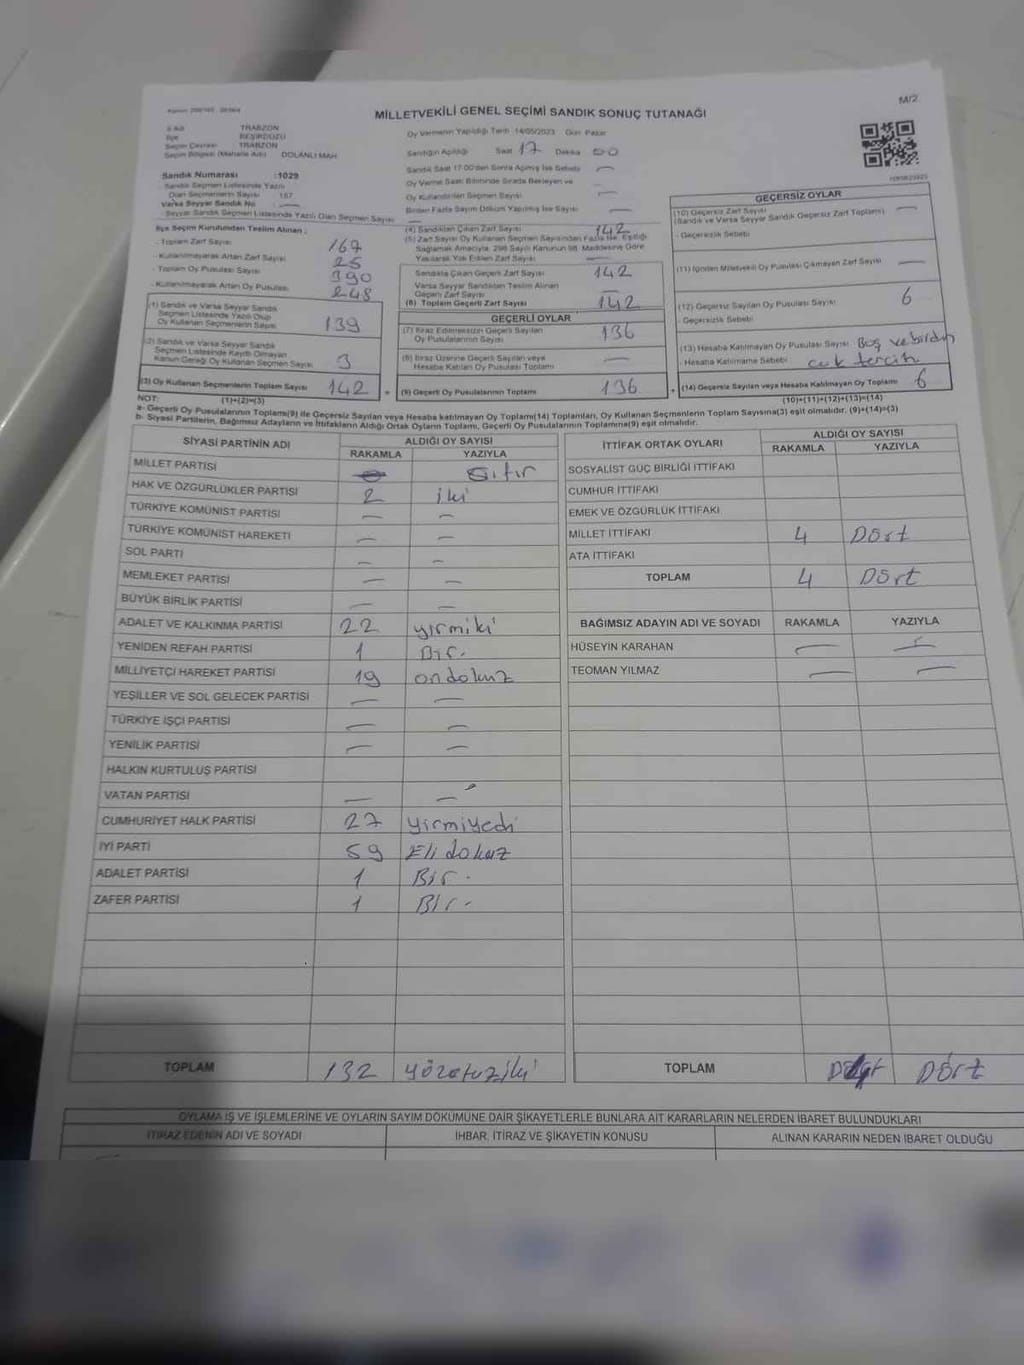 M/2
MİLLETVEKİLİ GENEL SEÇİMİ SANDIK SONUÇ TUTANAĞI
İl Adı TRABZON
İlçe BEŞİKDÜZÜ
Seçim Çevresi TRABZON
Seçim Bölgesi (Mahalle Adı) DOLANLI MAH
Oy Vermenin Yapıldığı Tarih 14/05/2023 Gün Pazar
Sandığın Açıldığı Saat 17 Dakika 00
Sandık Saat 17:00'den Sonra Açılmış İse Sebebi —
Oy Verme Saati Bitiminde Sırada Bekleyen ve
Oy Kullandırılan Seçmen Sayısı —
Birden Fazla Sayım Döküm Yapılmış İse Sayısı —
Sandık Numarası :1029
Sandık Seçmen Listesinde Yazılı
Olan Seçmenlerin Sayısı 167
Varsa Seyyar Sandık No —
Seyyar Sandık Seçmen Listesinde Yazılı Olan Seçmen Sayısı —
İlçe Seçim Kurulundan Teslim Alınan ;
- Toplam Zarf Sayısı 167
- Kullanılmayarak Artan Zarf Sayısı 25
- Toplam Oy Pusulası Sayısı 390
- Kullanılmayarak Artan Oy Pusulası 248
(1) Sandık ve Varsa Seyyar Sandık
Seçmen Listesinde Yazılı Olup
Oy Kullanan Seçmenlerin Sayısı 139
(2) Sandık ve Varsa Seyyar Sandık
Seçmen Listesinde Kaydı Olmayan
Kanun Gereği Oy Kullanan Seçmen Sayısı 3
(3) Oy Kullanan Seçmenlerin Toplam Sayısı 142
(4) Sandıktan Çıkan Zarf Sayısı 142
(5) Zarf Sayısı Oy Kullanan Seçmen Sayısından Fazla İse, Eşitliği
Sağlamak Amacıyla, 298 Sayılı Kanunun 98. Maddesine Göre
Yakılarak Yok Edilen Zarf Sayısı —
Sandıkta Çıkan Geçerli Zarf Sayısı 142
Varsa Seyyar Sandıktan Teslim Alınan
Geçerli Zarf Sayısı —
(6) Toplam Geçerli Zarf Sayısı 142
GEÇERLİ OYLAR
(7) İtiraz Edilmeksizin Geçerli Sayılan
Oy Pusulalarının Sayısı 136
(8) İtiraz Üzerine Geçerli Sayılan veya
Hesaba Katılan Oy Pusulası Toplamı —
(9) Geçerli Oy Pusulalarının Toplamı 136
GEÇERSİZ OYLAR
(10) Geçersiz Zarf Sayısı
(Sandık ve Varsa Seyyar Sandık Geçersiz Zarf Toplamı) —
- Geçersizlik Sebebi
(11) İçinden Milletvekili Oy Pusulası Çıkmayan Zarf Sayısı —
(12) Geçersiz Sayılan Oy Pusulası Sayısı 6
- Geçersizlik Sebebi
(13) Hesaba Katılmayan Oy Pusulası Sayısı Boş ve birden
Hesaba Katılmama Sebebi çok tercih
(14) Geçersiz Sayılan veya Hesaba Katılmayan Oy Toplamı 6
NOT: (1)+(2)=(3)
(10)+(11)+(12)+(13)=(14)
a- Geçerli Oy Pusulalarının Toplamı(9) ile Geçersiz Sayılan veya Hesaba katılmayan Oy Toplamı(14) Toplamları, Oy Kullanan Seçmenlerin Toplam Sayısına(3) eşit olmalıdır. (9)+(14)=(3)
b- Siyasi Partilerin, Bağımsız Adayların ve İttifakların Aldığı Oy Ortak Oyların Toplamı, Geçerli Oy Pusulalarının Toplamına(9) eşit olmalıdır.
SİYASİ PARTİNİN ADI ALDIĞI OY SAYISI
RAKAMLA YAZIYLA
MİLLET PARTİSİ Sıfır
HAK VE ÖZGÜRLÜKLER PARTİSİ 2 iki
TÜRKİYE KOMÜNİST PARTİSİ — —
TÜRKİYE KOMÜNİST HAREKETİ — —
SOL PARTİ — —
MEMLEKET PARTİSİ — —
BÜYÜK BİRLİK PARTİSİ — —
ADALET VE KALKINMA PARTİSİ 22 yirmiki
YENİDEN REFAH PARTİSİ 1 Bir.
MİLLİYETÇİ HAREKET PARTİSİ 19 ondokuz
YEŞİLLER VE SOL GELECEK PARTİSİ — —
TÜRKİYE İŞÇİ PARTİSİ — —
YENİLİK PARTİSİ — —
HALKIN KURTULUŞ PARTİSİ
VATAN PARTİSİ — —
CUMHURİYET HALK PARTİSİ 27 yirmiyedi
İYİ PARTİ 59 Elidokuz
ADALET PARTİSİ 1 Bir.
ZAFER PARTİSİ 1 Bir.
TOPLAM 132 yüzotuziki
İTTİFAK ORTAK OYLARI ALDIĞI OY SAYISI
RAKAMLA YAZIYLA
SOSYALİST GÜÇ BİRLİĞİ İTTİFAKI
CUMHUR İTTİFAKI
EMEK VE ÖZGÜRLÜK İTTİFAKI
MİLLET İTTİFAKI 4 Dört
ATA İTTİFAKI
TOPLAM 4 Dört
BAĞIMSIZ ADAYIN ADI VE SOYADI RAKAMLA YAZIYLA
HÜSEYİN KARAHAN — —
TEOMAN YILMAZ — —
TOPLAM Dört
OYLAMA İŞ VE İŞLEMLERİNE VE OYLARIN SAYIM DÖKÜMÜNE DAİR ŞİKAYETLERLE BUNLARA AİT KARARLARIN NELERDEN İBARET BULUNDUKLARI
İTİRAZ EDENİN ADI VE SOYADI İHBAR, İTİRAZ VE ŞİKAYETİN KONUSU ALINAN KARARIN NEDEN İBARET OLDUĞU